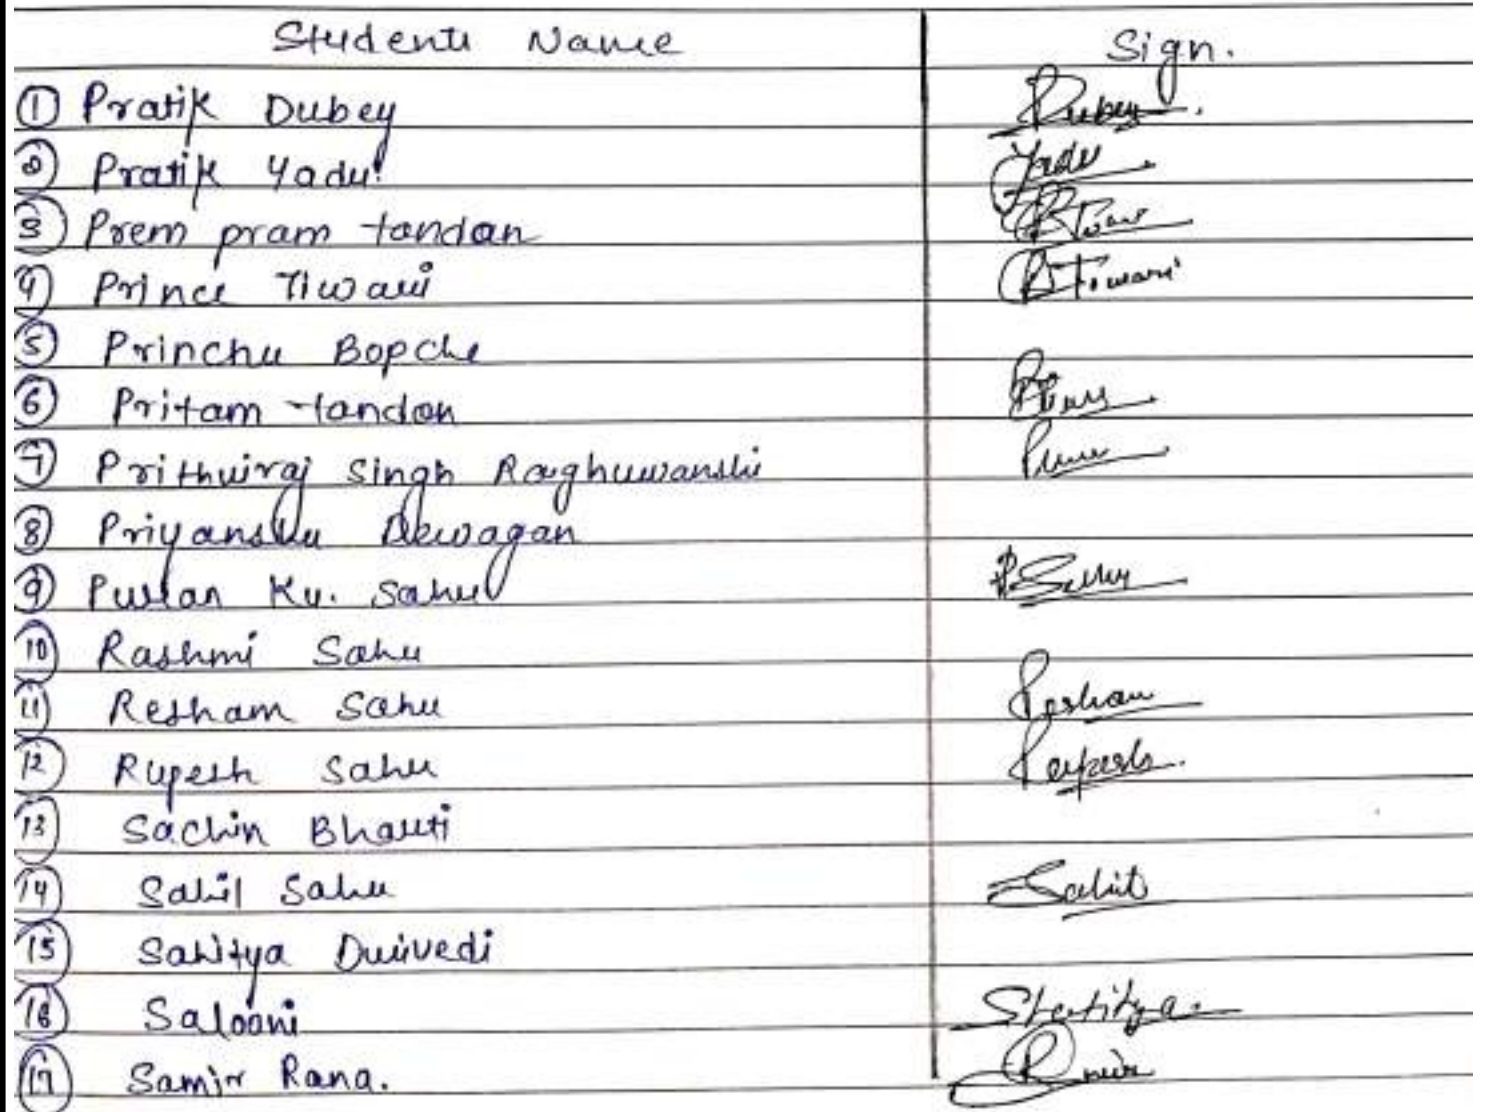 Students Name Sign.
1 Pratik Dubey Dubey.
2 Pratik Yadu Yadu
3 Prem pram tandan
4 Prince Tiwari P Tiwari
5 Princhu Bopche
6 Pritam tandon
7 Prithviraj Singh Raghuwanshi
8 Priyanshu Dewagan
9 Pustan Ku. Sahu P Sahu
10 Rashmi Sahu
11 Resham Sahu Resham
12 Rupesh Sahu Rupesh.
13 Sachin Bharti
14 Sahil Sahu Sahil
15 Sahitya Dwivedi
16 Salooni
17 Samir Rana.